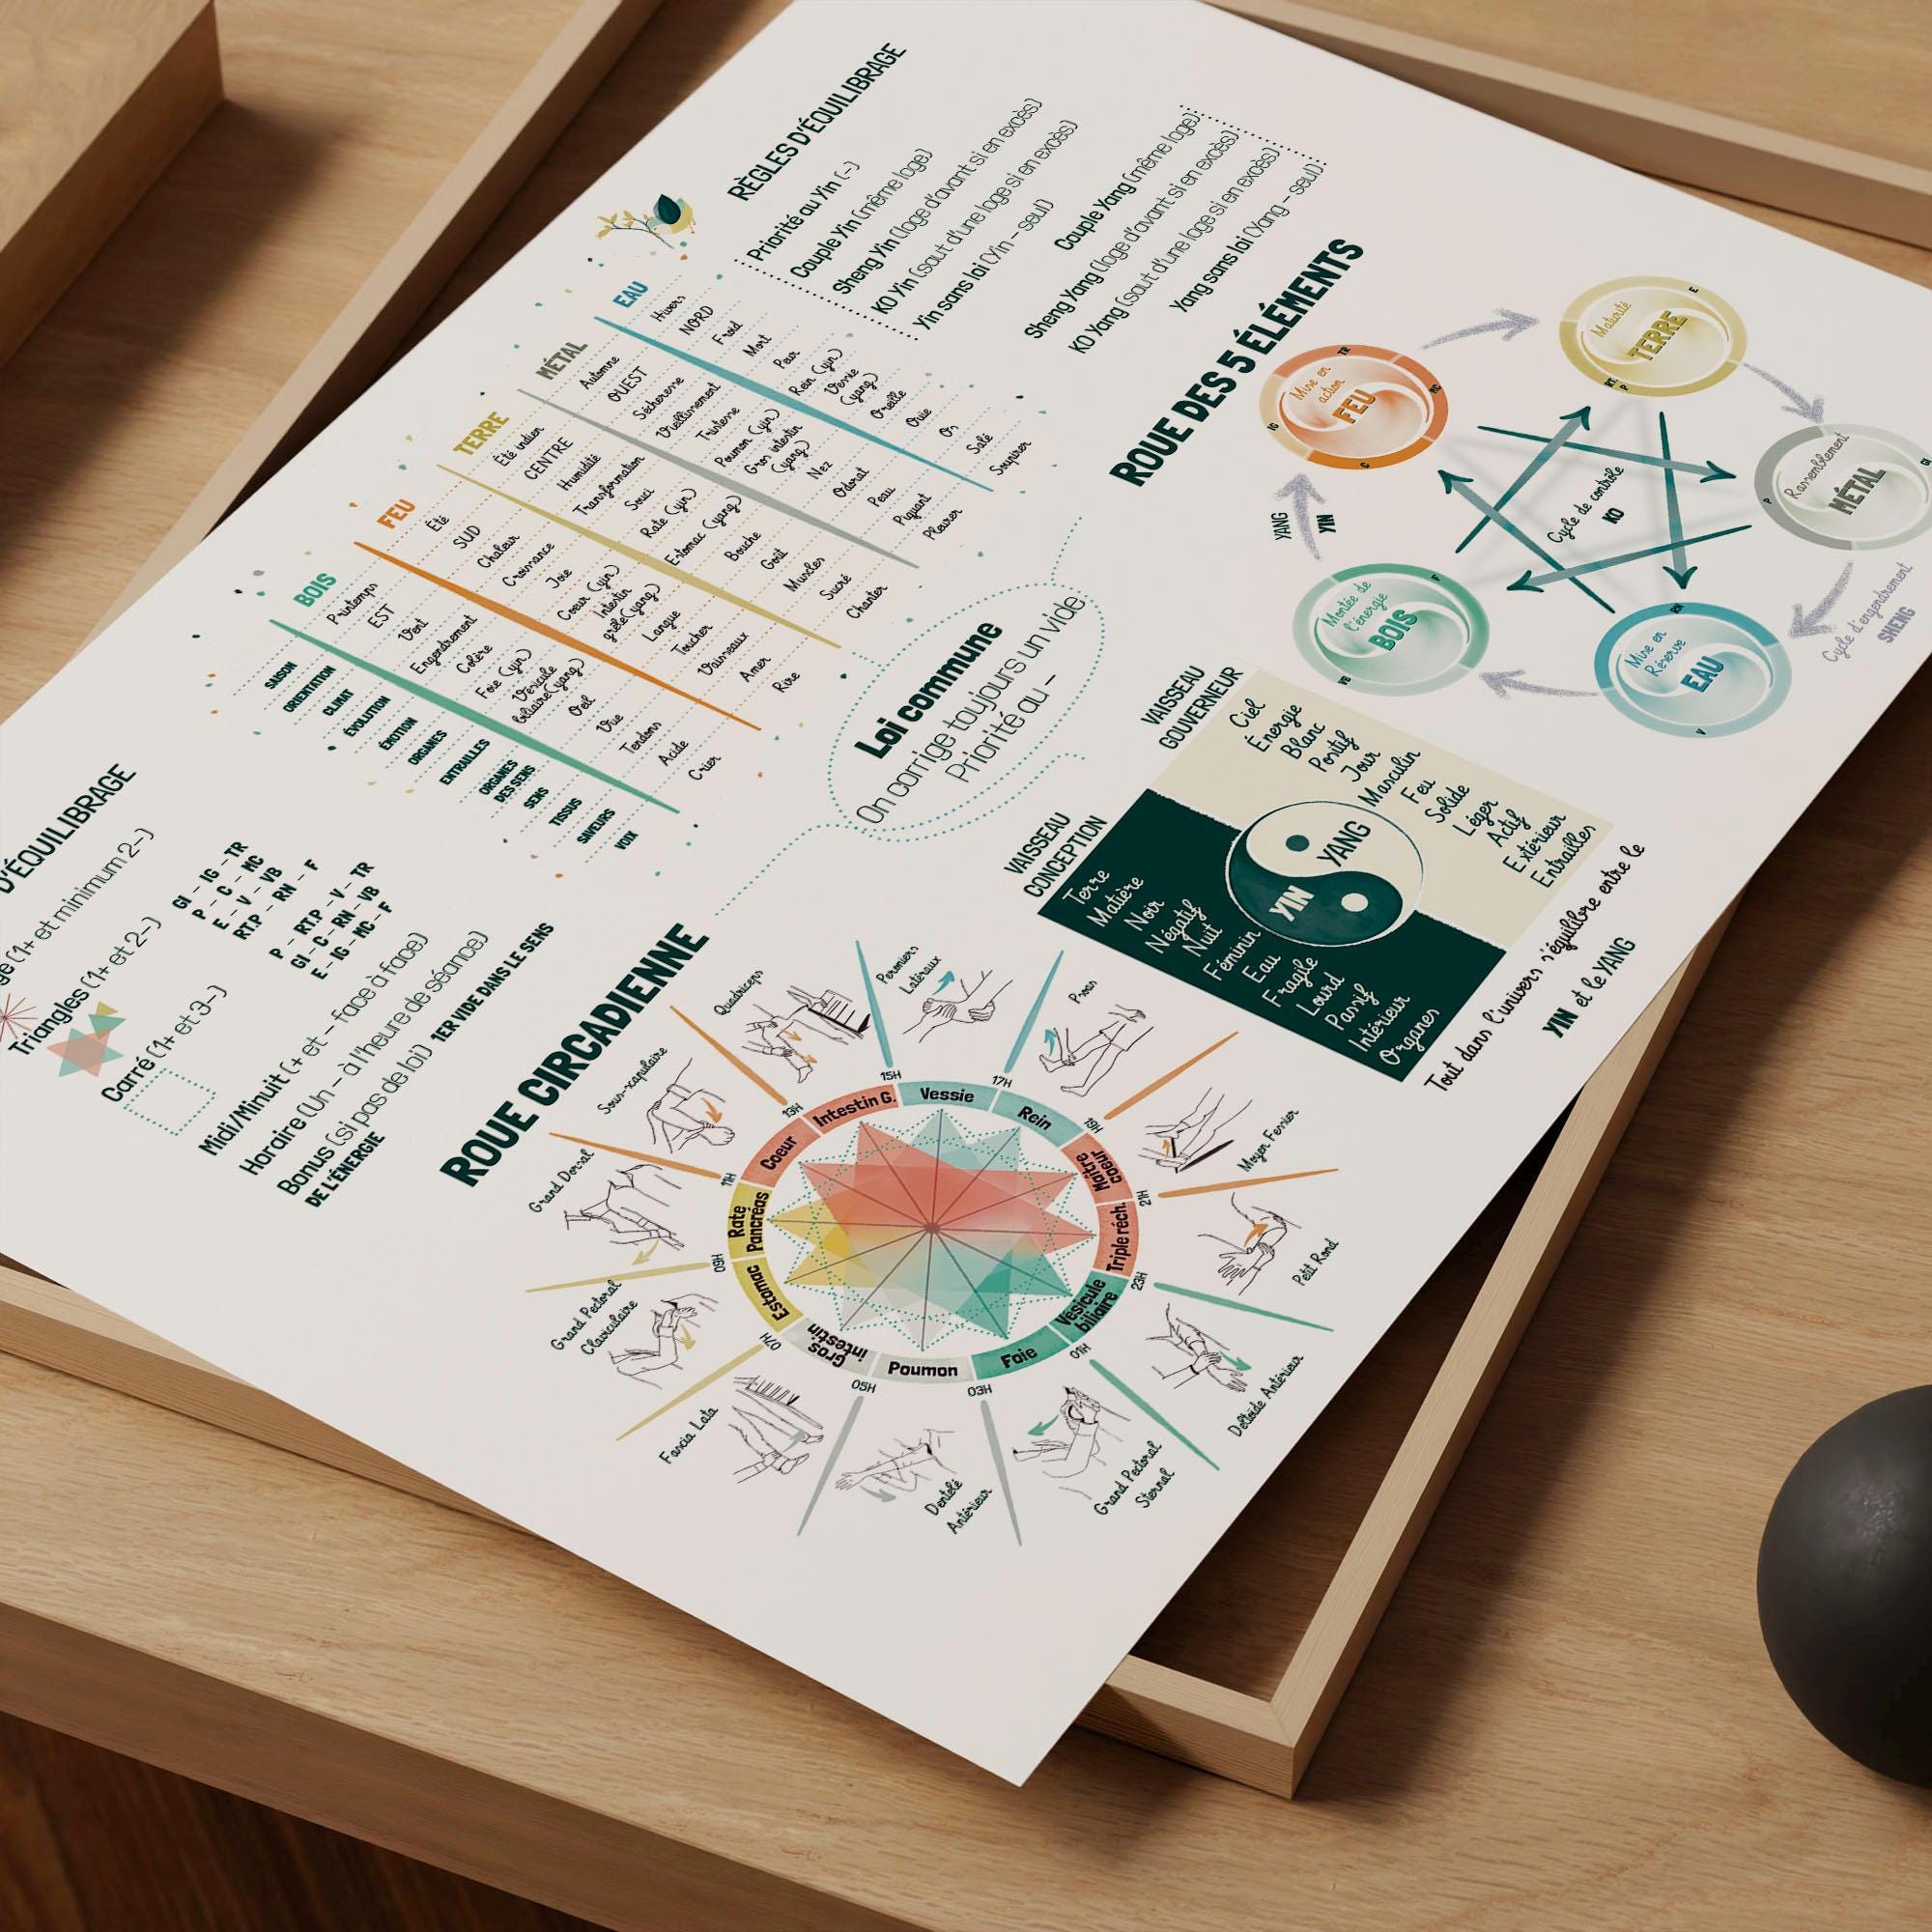 RÈGLES D'ÉQUILIBRAGE
Priorité au Yin (-)
Couple Yin (même loge)
Sheng Yin (loge d'avant si en excès)
KO Yin (saut d'une loge si en excès)
Yin sans loi (Yin - seul)
Couple Yang (même loge)
Sheng Yang (loge d'avant si en excès)
KO Yang (saut d'une loge si en excès)
Yang sans loi (Yang - seul)
BOIS FEU TERRE MÉTAL EAU
SAISON Printemps Été Été indien Automne Hiver
ORIENTATION EST SUD CENTRE OUEST NORD
CLIMAT Vent Chaleur Humidité Sécheresse Froid
ÉVOLUTION Engendrement Croissance Transformation Vieillissement Mort
ÉMOTION Colère Joie Souci Tristesse Peur
ORGANES Foie (yin) Coeur (yin) Rate (yin) Poumon (yin) Rein (yin)
ENTRAILLES Vésicule biliaire (yang) Intestin grêle (yang) Estomac (yang) Gros intestin (yang) Vessie (yang)
ORGANES DES SENS Oeil Langue Bouche Nez Oreille
SENS Vue Toucher Goût Odorat Ouïe
TISSUS Tendons Vaisseaux Muscles Peau Os
SAVEURS Acide Amer Sucré Piquant Salé
VOIX Crier Rire Chanter Pleurer Soupirer
Loi commune
On corrige toujours un vide
Priorité au -
ROUE DES 5 ÉLÉMENTS
Mise en
action
FEU
IG
TR
MC
C
Maturité
TERRE
E
RT
P
Rassemblement
MÉTAL
P
GI
Mise en
Réserve
EAU
RN
V
Montée de
l'énergie
BOIS
F
VB
YANG
YIN
Cycle de contrôle
KO
Cycle d'engendrement
SHENG
VAISSEAU
GOUVERNEUR
Ciel
Énergie
Blanc
Positif
Jour
Masculin
Feu
Solide
Léger
Actif
Extérieur
Entrailles
YANG
YIN
VAISSEAU
CONCEPTION
Terre
Matière
Noir
Négatif
Nuit
Féminin
Eau
Fragile
Lourd
Passif
Intérieur
Organes
Tout dans l'univers s'équilibre entre le
YIN et le YANG
D'ÉQUILIBRAGE
(1+ et minimum 2-)
Triangles (1+ et 2-)
GI - IG - TR
P - C - MC
E - V - VB
RT.P - RN - F
Carré (1+ et 3-)
P - RT.P - V - TR
GI - C - RN - VB
E - IG - MC - F
Midi/Minuit (+ et - face à face)
Horaire (Un - à l'heure de séance)
Bonus (si pas de loi) 1ER VIDE DANS LE SENS
DE L'ÉNERGIE
ROUE CIRCADIENNE
Quadriceps
Péroniers
Latéraux
Psoas
Moyen Fessier
Petit Rond
Deltoïde Antérieur
Grand Pectoral
Sternal
Dentelé
Antérieur
Fascia Lata
Grand Pectoral
Claviculaire
Grand Dorsal
Sous-scapulaire
15H
17H
19H
21H
23H
01H
03H
05H
07H
09H
11H
13H
Intestin G.
Vessie
Rein
Maître
coeur
Triple réch.
Vésicule
biliaire
Foie
Poumon
Gros
intestin
Estomac
Rate
Pancréas
Coeur